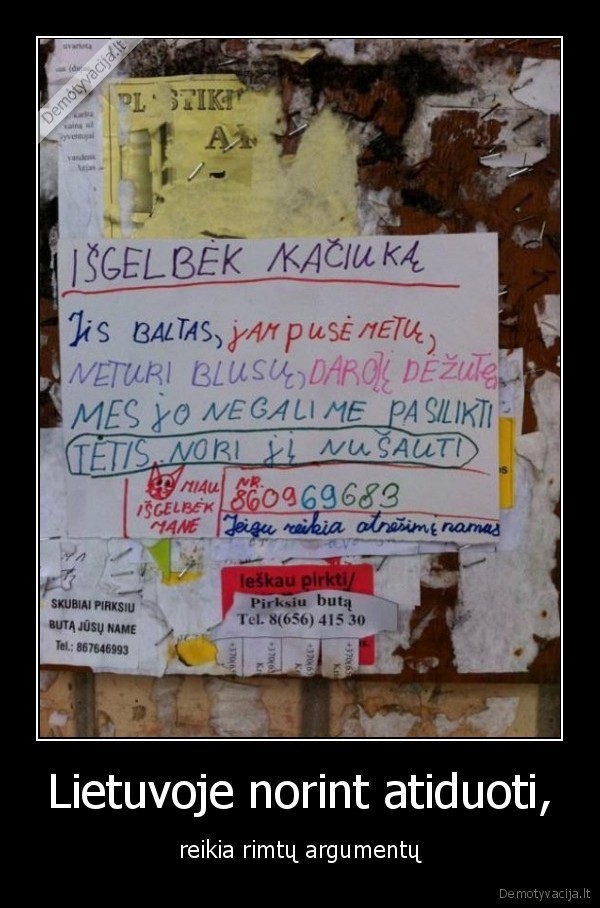 Demotyvacija.lt
uvartotą
kaina už
Gyventojai
vandens
PL STIKI
A
IŠGELBĖK KAČIUKĄ
Jis BALTAS, jAM pUSĖ METŲ,
NETURI BLUSŲ, DARO Į DĖŽUTĘ,
MES JO NEGALIME PASILIKTI
TĖTIS NORI JĮ NUŠAUTI
MIAU
IŠGELBĖK
MANE
NR.
860969683
Jeigu reikia atnešim į namus
SKUBIAI PIRKSIU
BUTĄ JŪSŲ NAME
Tel.: 867646993
Ieškau pirkti/
Pirksiu butą
Tel. 8(656) 415 30
Lietuvoje norint atiduoti,
reikia rimtų argumentų
Demotyvacija.lt